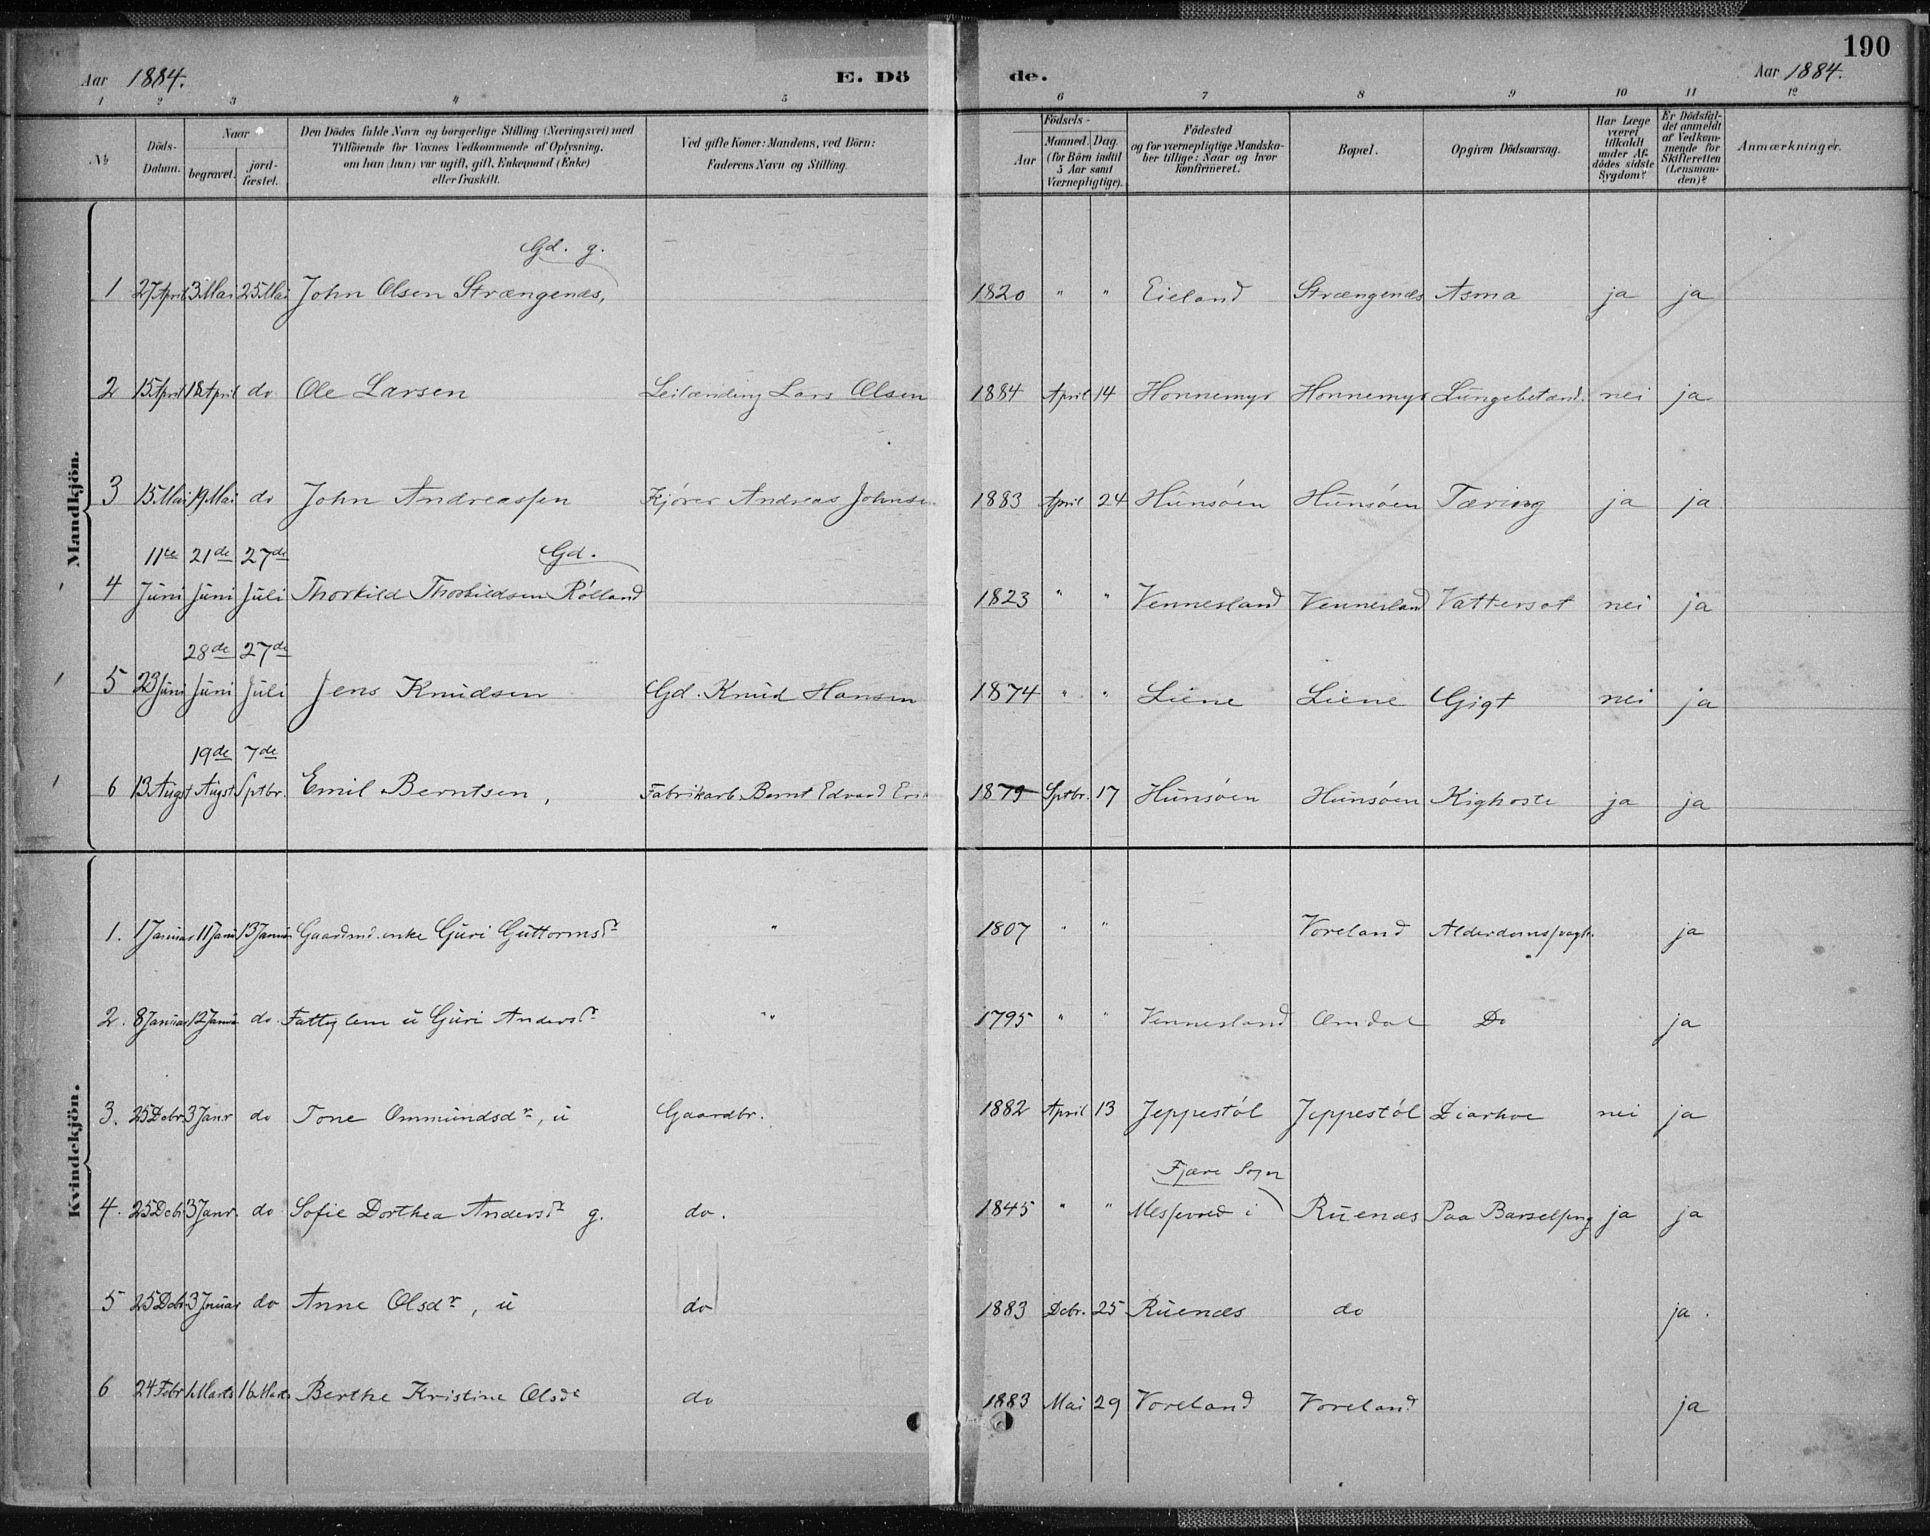 190
Aar 1884. E. Dö de. Aar 1884.
1 2 3 4 5 6 7 8 9 10 11 12
No
Döds-
Datum.
Naar
begravet.
jord-
fæstet.
Den Dödes fulde Navn og borgerlige Stilling (Næringsvei) med
Tilföiende for Voxnes Vedkommende af Oplysning.
om han (hun) var ugift, gift, Enkemand (Enke)
eller fraskilt.
Ved gifte Koner: Mandens, ved Börn:
Faderens Navn og Stilling.
Födsels-
Aar
Maaned. Dag.
(for Börn indtil
5 Aar samt
Værnepligtige).
Födested
og for værnepligtige Mandska-
ber tillige: Naar og hvor
konfirmeret.
Bopæl.
Opgiven Dödsaarsag.
Har Læge
været
tilkaldt
under Af-
dödes sidste
Sygdom?
Er Dödsfal-
det anmeldt
af Vedkom-
mende for
Skifteretten
(Lensman-
den)?
Anmærkninger.
Mandkjön.
Gd. g.
1 27 April 3 Mai 25 Mai John Olsen Strængenæs, 1820 " " Eieland Strængenæs Asma ja ja
2 15 April 18 April do Ole Larsen Leilænding Lars Olsen 1884 April 14 Honnemyr Honnemyr Lungebetænd. nei ja
3 15 Mai 19 Mai do John Andreassen Kjörer Andreas Johnse 1883 April 24 Hunsöen Hunsöen Tæring ja ja
11te 21de 27de Gd.
4 Juni Juni Juli Thorkild Thorkildsen Rölland 1823 " " Vennesland Vennesland Vattersot nei ja
28de 27de
5 23 Juni Juni Juli Jens Knudsen Gd. Knud Hansen 1874 " " Liene Liene Gigt nei ja
19de 7de
6 13 Augst Augst Sptbr. Emil Berntsen, Fabrikarb. Bernt Edvard Eri 1879 Sptbr. 17 Hunsöen Hunsöen Kighoste ja ja
Kvindekjön.
1. 1 Januar 11 Janu 13 Januar Gaardmd. enke Guri Guttormsdr " 1807 " " Voreland Alderdomssvagh. ja
2. 8 Januar 12 Janu do. Fattiglem u Guri Andersdr " 1795 " " Vennesland Omdal Do ja
3. 25 Debr 3 Janr do Tone Ommundsdr, u Gaardbr. 1882 April 13 Jeppestöl Jeppestöl Diarhoe nei ja
Fjære Sogn
4. 25 Debr 3 Janr. do Sofie Dorthea Andersdr g. do. 1845 " " i Ruenæs Paa Barselseng ja ja
5 25 Debr 3 Januar do Anne Olsdr, u do 1883 Debr. 25 Ruenæs do ja.
6 24 Febr 1 Marts 16 Marts Berthe Kristine Olsdr do 1883 Mai 29 Voreland Voreland ja